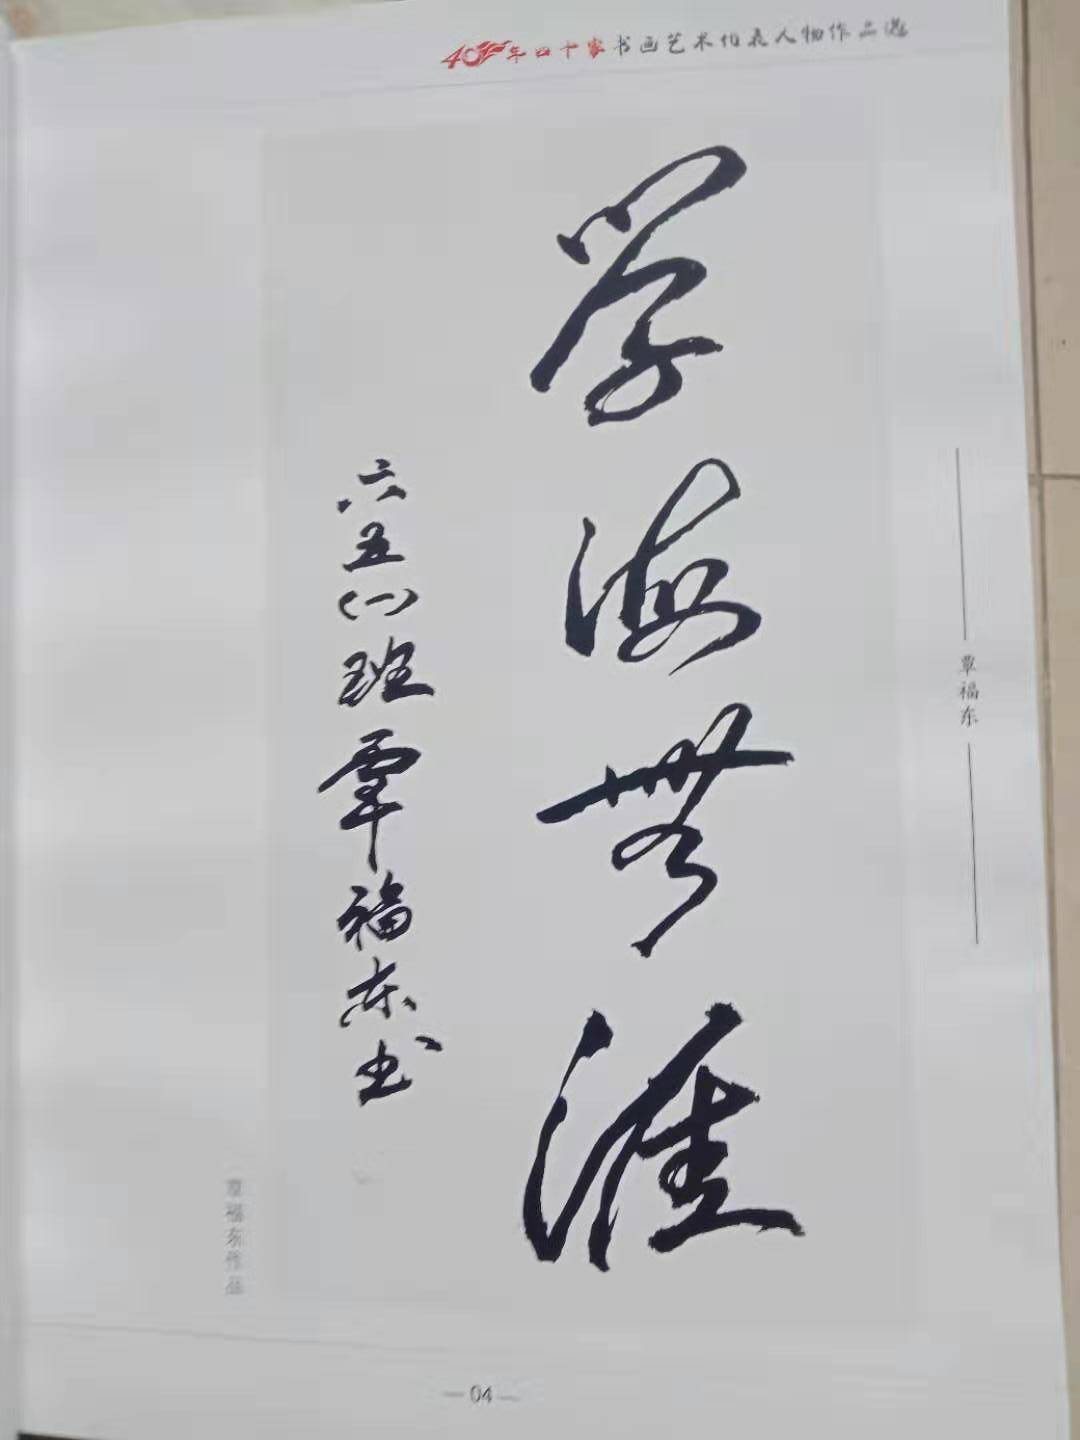 40年四十家书画艺术代表人物作品选
学海無涯
六五(一)班覃福东书
覃福东
覃福东作品
04